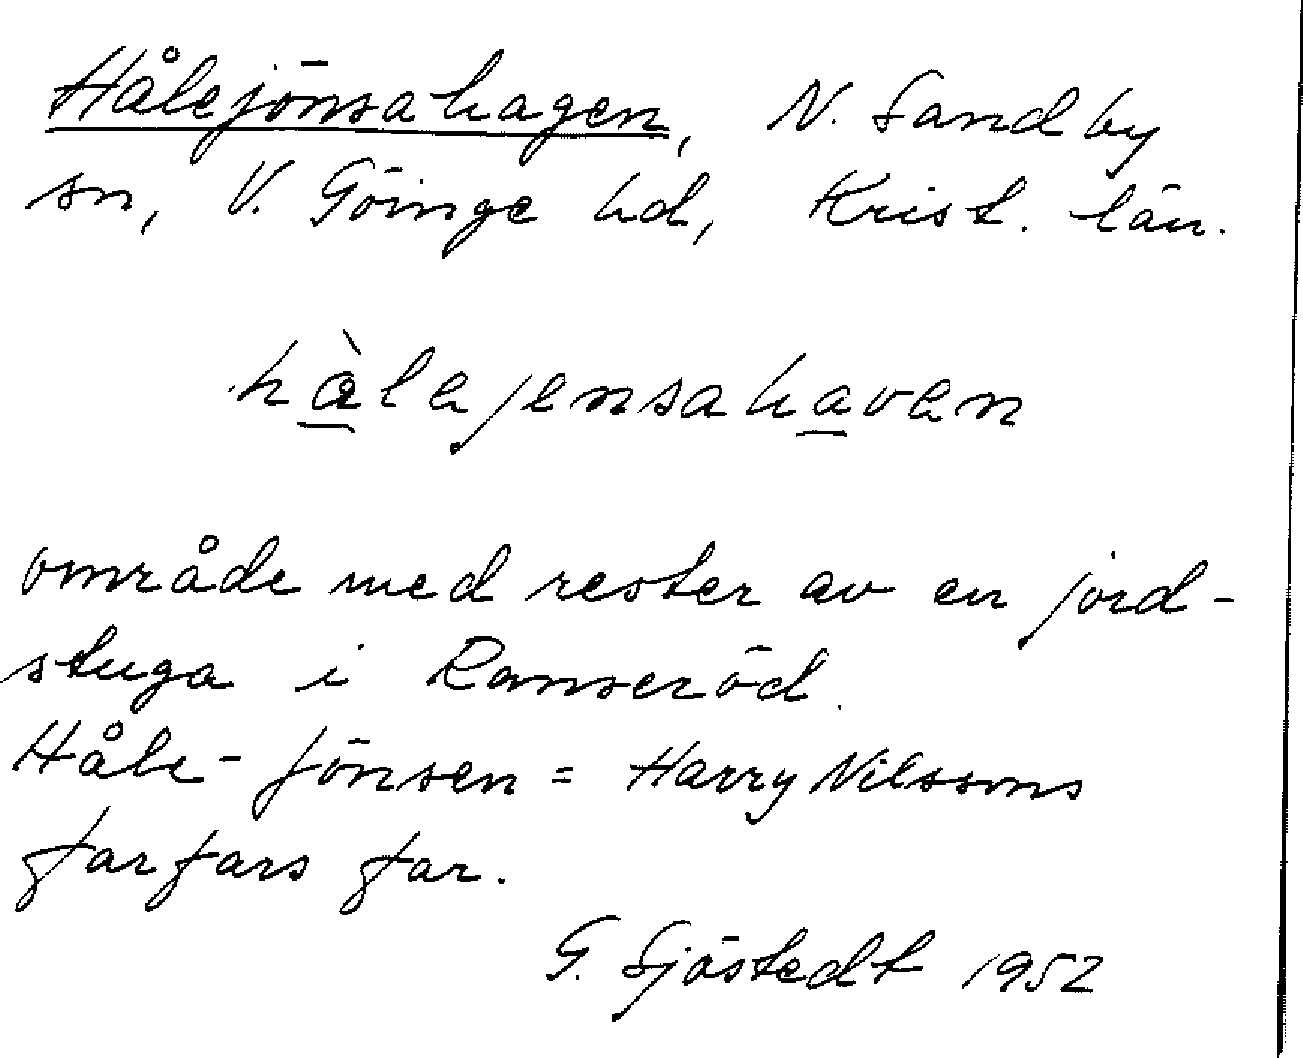 Hålejönsahagen, N. Sandby
sn, V. Göinge hd, Krist. län.
hàlejensahaven
område med rester av en jord-
stuga i Ranseröd.
Håle-Jönsen = Harry Nilssons
farfars far.
G. Sjöstedt 1952